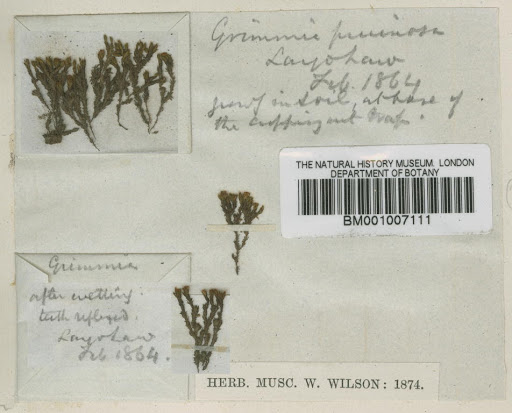 Grimmia pruinosa
Layshaw
Feb. 1864
growg in soil, at base of
the cropping out trap.
THE NATURAL HISTORY MUSEUM, LONDON
DEPARTMENT OF BOTANY
BM001007111
Grimmia
after wetting
teeth reflexed.
Layshaw
Feb 1864.
HERB. MUSC. W. WILSON: 1874.